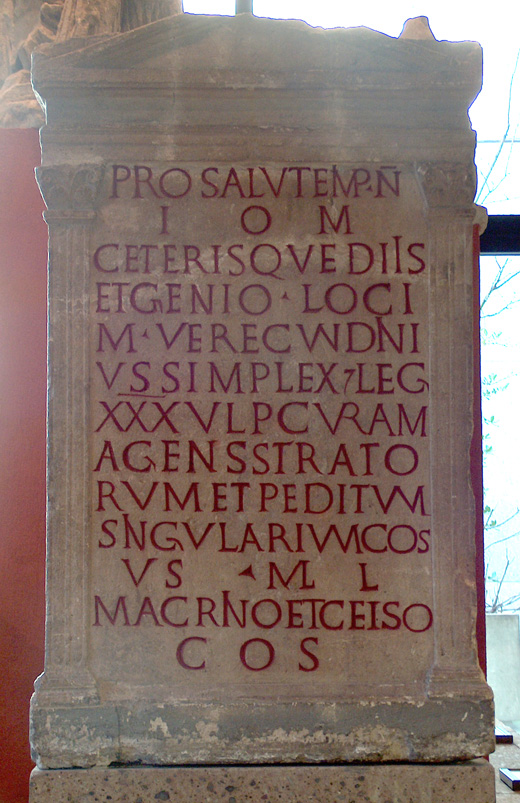 PRO SALVTEMP·Ñ
I O M
CETERISQVEDIIS
ETGENIO · LOCI
M · VERECVNDNI
VSSIMPLEX7LEG
XXXVLPCVRAM
AGENSSTRATO
RVMETPEDITVM
SNGVLARIVMCOS
VS · M L
MACRNOETCElSO
COS